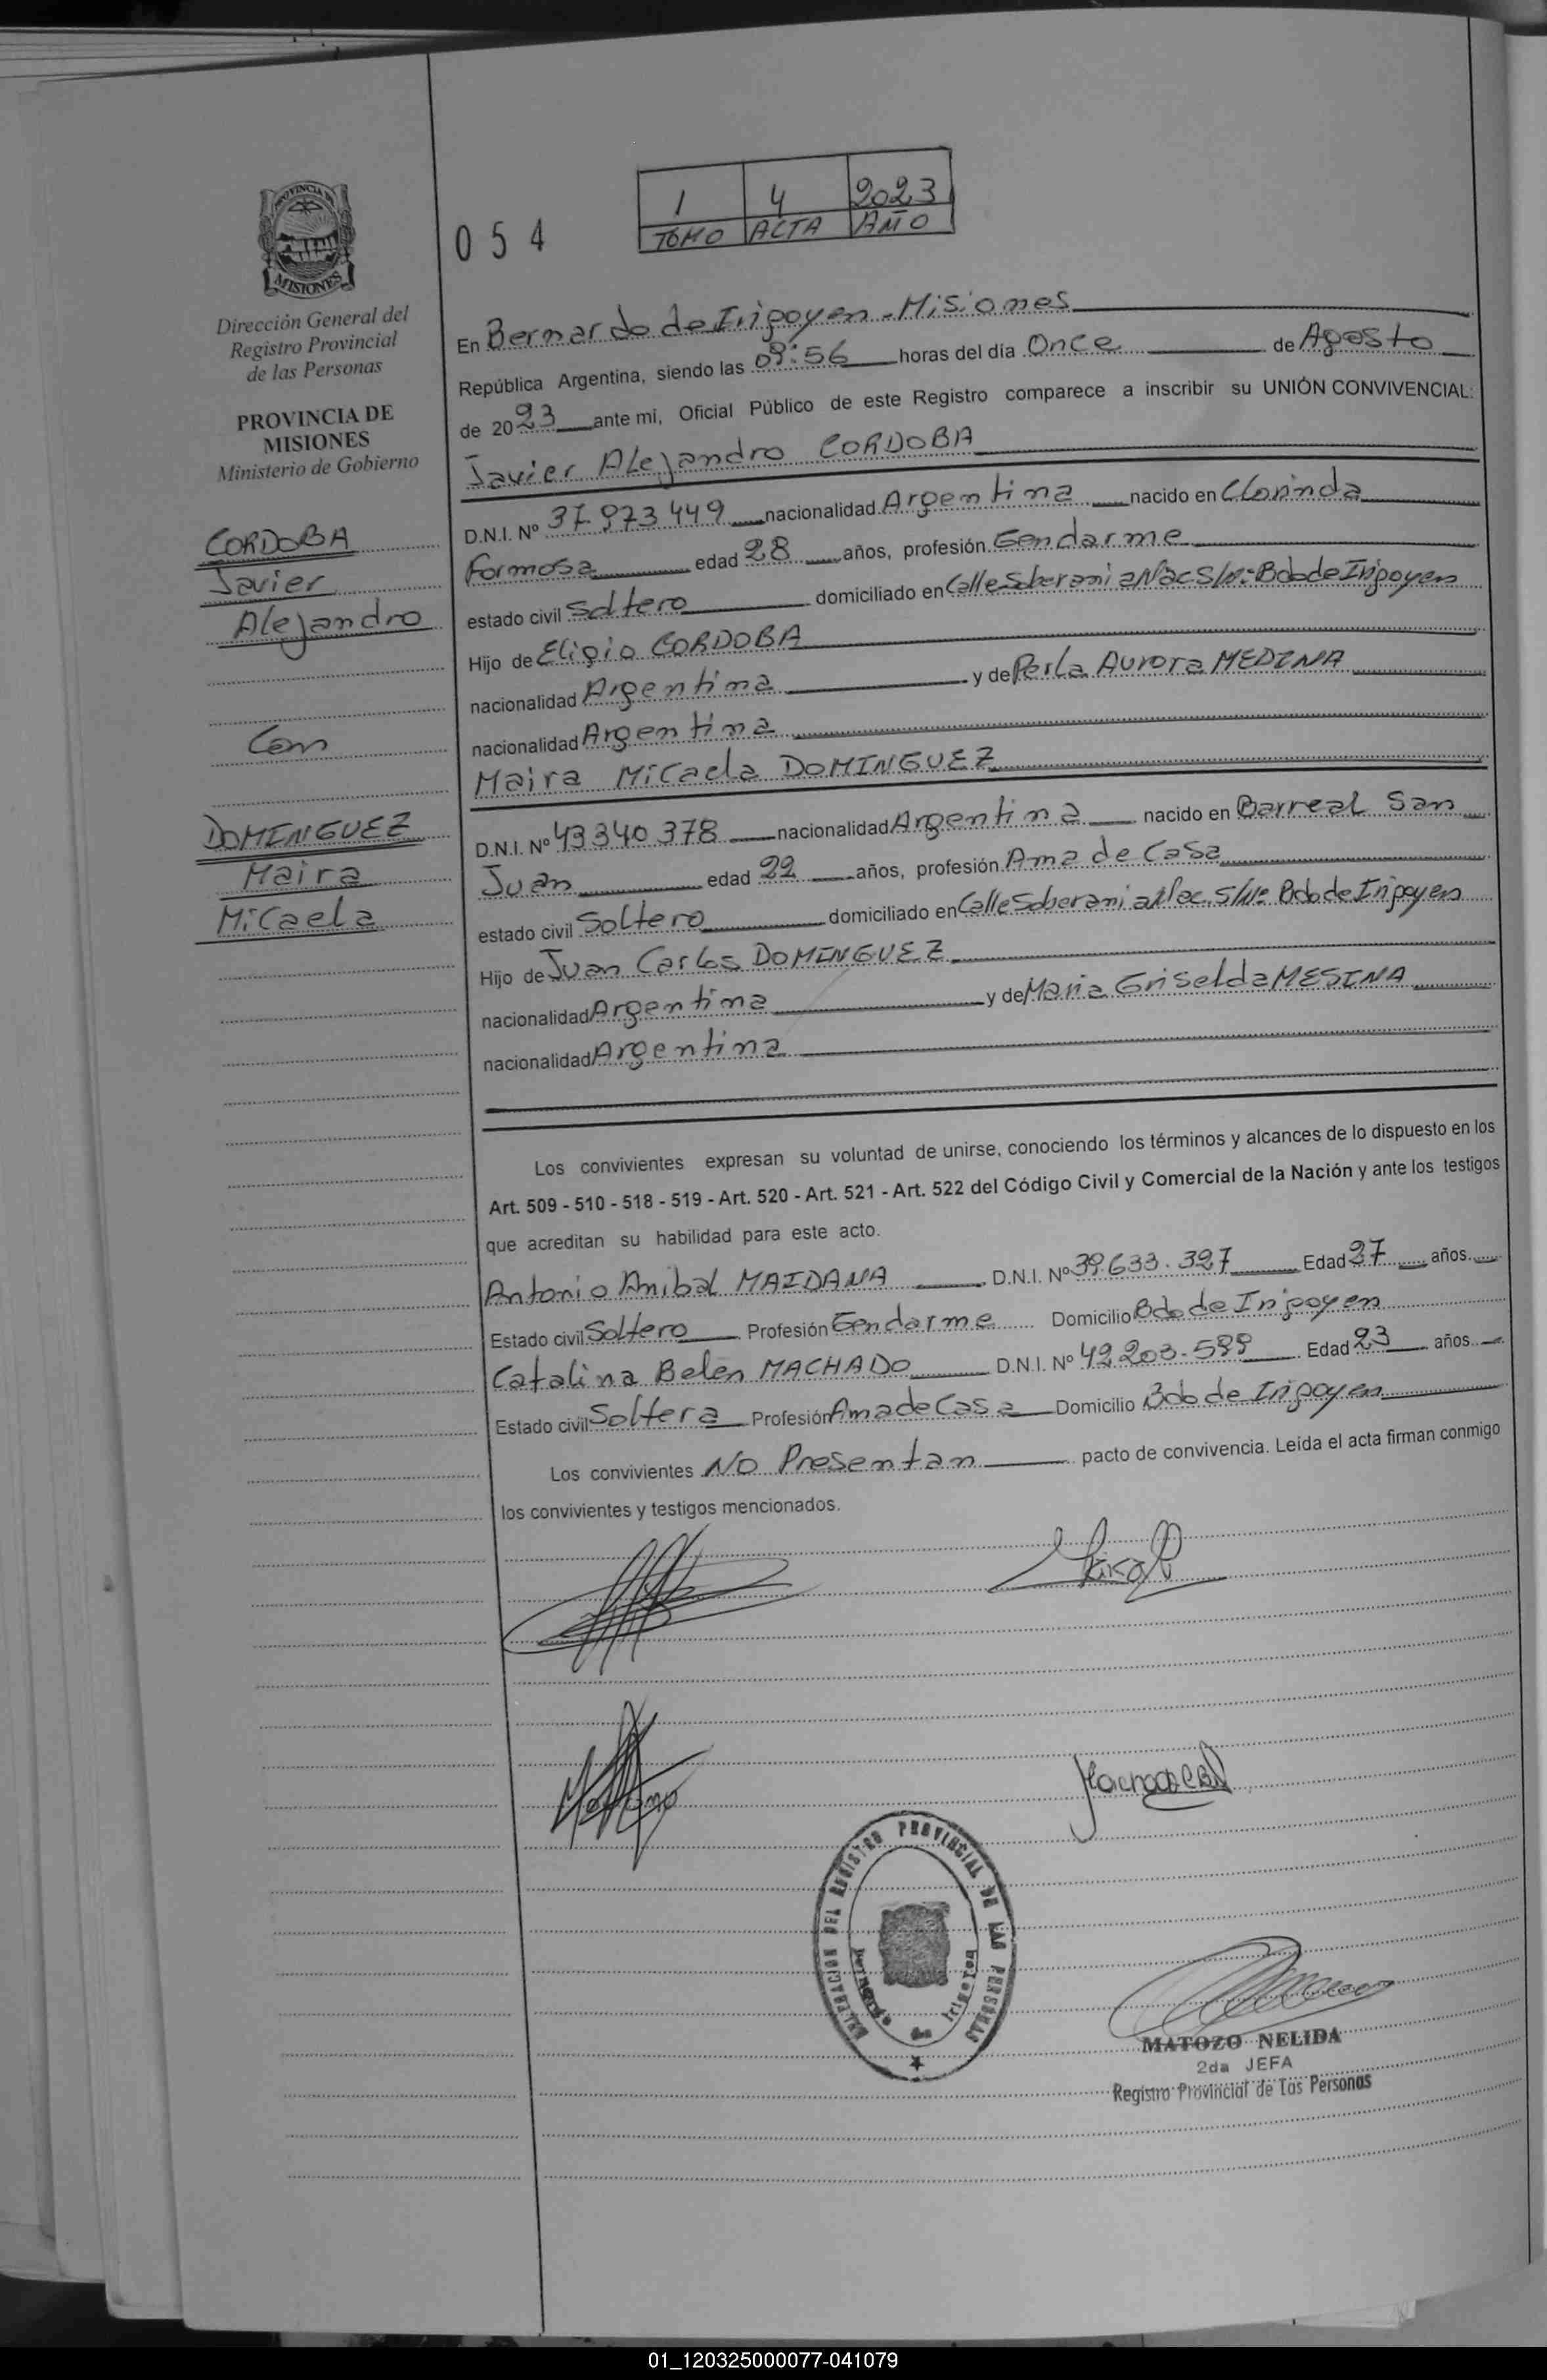 1 4 2023
TOMO ACTA AÑO
054
PROVINCIA DE
MISIONES
Dirección General del
Registro Provincial
de las Personas
PROVINCIA DE
MISIONES
Ministerio de Gobierno
CORDOBA
Javier
Alejandro
Con
DOMINGUEZ
Maira
Micaela
En Bernardo de Irigoyen - Misiones
República Argentina, siendo las 09:56 horas del día Once de Agosto
de 2023 ante mi, Oficial Público de este Registro comparece a inscribir su UNIÓN CONVIVENCIAL:
Javier Alejandro CORDOBA
D.N.I. Nº 37 973 449 nacionalidad Argentina nacido en Clorinda
Formosa edad 28 años, profesión Gendarme
estado civil Soltero domiciliado en Calle Soberania Nac S/Nº Bdo de Irigoyen
Hijo de Eligio CORDOBA
nacionalidad Argentina y de Perla Aurora MEDINA
nacionalidad Argentina
Maira Micaela DOMINGUEZ
D.N.I. Nº 43 340 378 nacionalidad Argentina nacido en Barreal San
Juan edad 22 años, profesión Ama de Casa
estado civil Soltero domiciliado en Calle Soberania Nac. S/Nº Bdo de Irigoyen
Hijo de Juan Carlos DOMINGUEZ
nacionalidad Argentina y de Maria Griselda MESINA
nacionalidad Argentina
Los convivientes expresan su voluntad de unirse, conociendo los términos y alcances de lo dispuesto en los
Art. 509 - 510 - 518 - 519 - Art. 520 - Art. 521 - Art. 522 del Código Civil y Comercial de la Nación y ante los testigos
que acreditan su habilidad para este acto.
Antonio Anibal MAIDANA D.N.I. Nº 39.633.327 Edad 27 años
Estado civil Soltero Profesión Gendarme Domicilio Bdo de Irigoyen
Catalina Belen MACHADO D.N.I. Nº 42.203.588 Edad 23 años
Estado civil Soltera Profesión Ama de Casa Domicilio Bdo de Irigoyen
Los convivientes No Presentan pacto de convivencia. Leída el acta firman conmigo
los convivientes y testigos mencionados.
DELEGACION DEL REGISTRO PROVINCIAL DE LAS PERSONAS
Bernardo de Irigoyen
MATOZO NELIDA
2da JEFA
Registro Provincial de las Personas
01_120325000077-041079